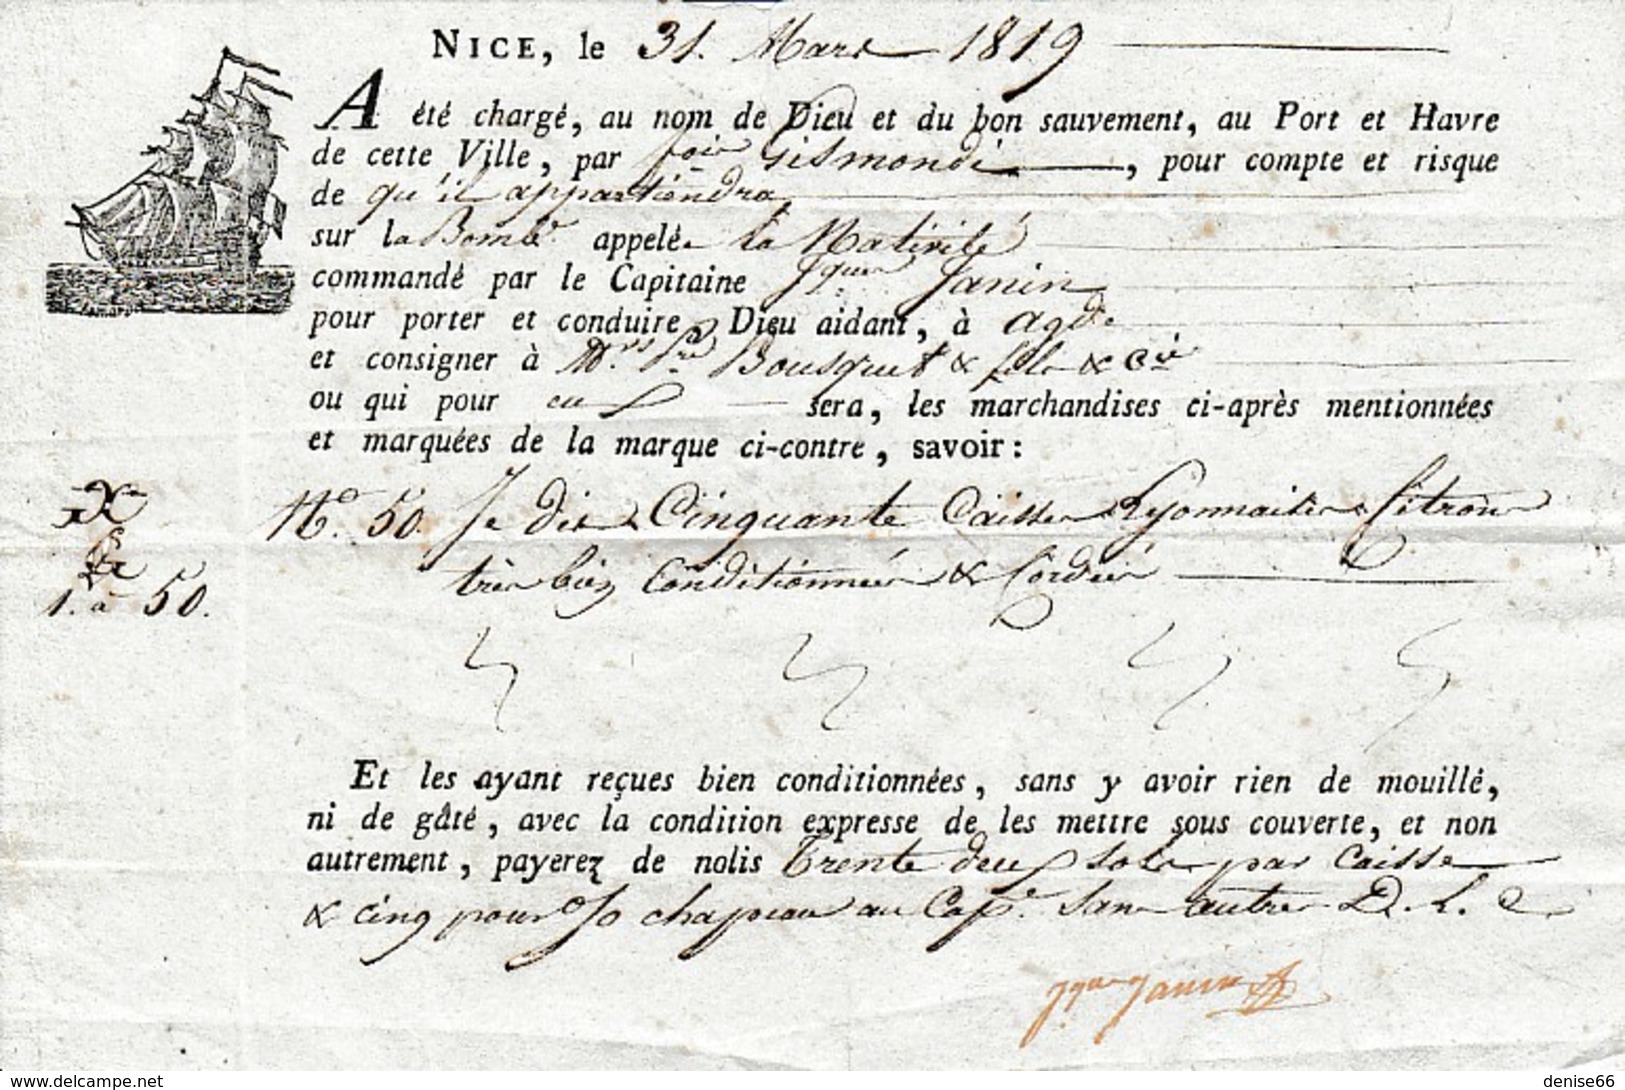 NICE, le 31. Mars 1819
A été chargé, au nom de Dieu et du bon sauvement, au Port et Havre
de cette Ville, par Gismondi, pour compte et risque
de qu'il appartiendra
sur la Bomb.e appelée la Nativité
commandé par le Capitaine Jques Janin
pour porter et conduire, Dieu aidant, à Agde
et consigner à M.rs Pre Bousquet & fils & Cie
ou qui pour eux sera, les marchandises ci-après mentionnées
et marquées de la marque ci-contre, savoir:
No. 50. Je dis Cinquante Caisses Lyonnaises Citrons
1. à 50.
très bien Conditionnées & Cordées
Et les ayant reçues bien conditionnées, sans y avoir rien de mouillé,
ni de gâté, avec la condition expresse de les mettre sous couverte, et non
autrement, payerez de nolis Trente deux sols par Caisse
& cinq pour % chapeau au Cap.e sans autre
Jques Janin
www.delcampe.net
denise66